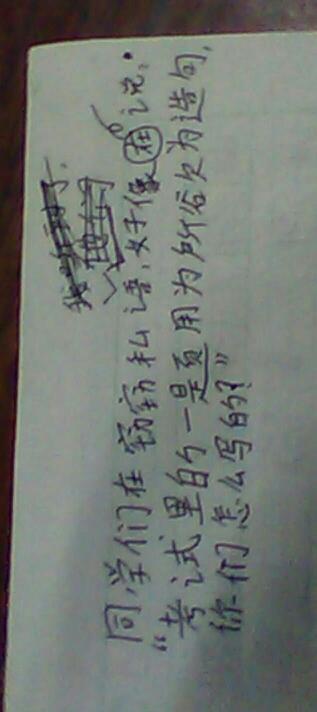 同学们在窃窃私语,好像在说:
“考试里的一题用为所欲为造句,
你们怎么写的?”